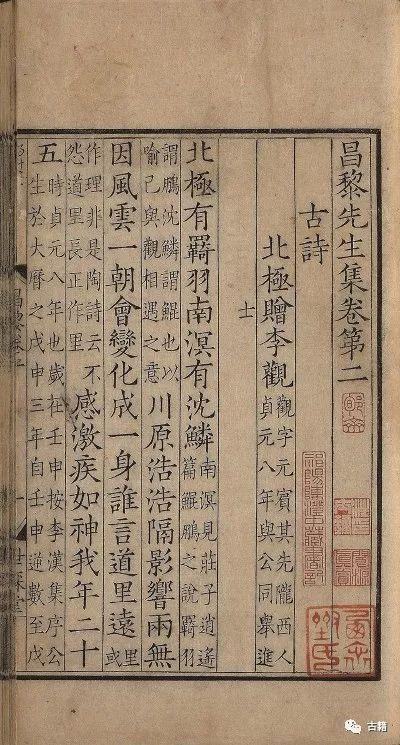 昌黎先生集卷第二
古詩
北極贈李觀
觀字元賓其先隴西人
貞元八年與公同舉進
士
北極有羇羽南溟有沈鱗
南溟見莊子逍遙
篇鯤鵬之說羇羽
謂鵬沈鱗謂鯤也以
喻己與觀相遇之意
川原浩浩隔影響兩無
因風雲一朝會變化成一身誰言道里遠
里或
作理非是陶詩云不
怨道里長正作里
感激疾如神我年二十
五
時貞元八年也歲在壬申按李漢集序公
生於大曆之戊申三年自壬申逆數至戊
一
古籍